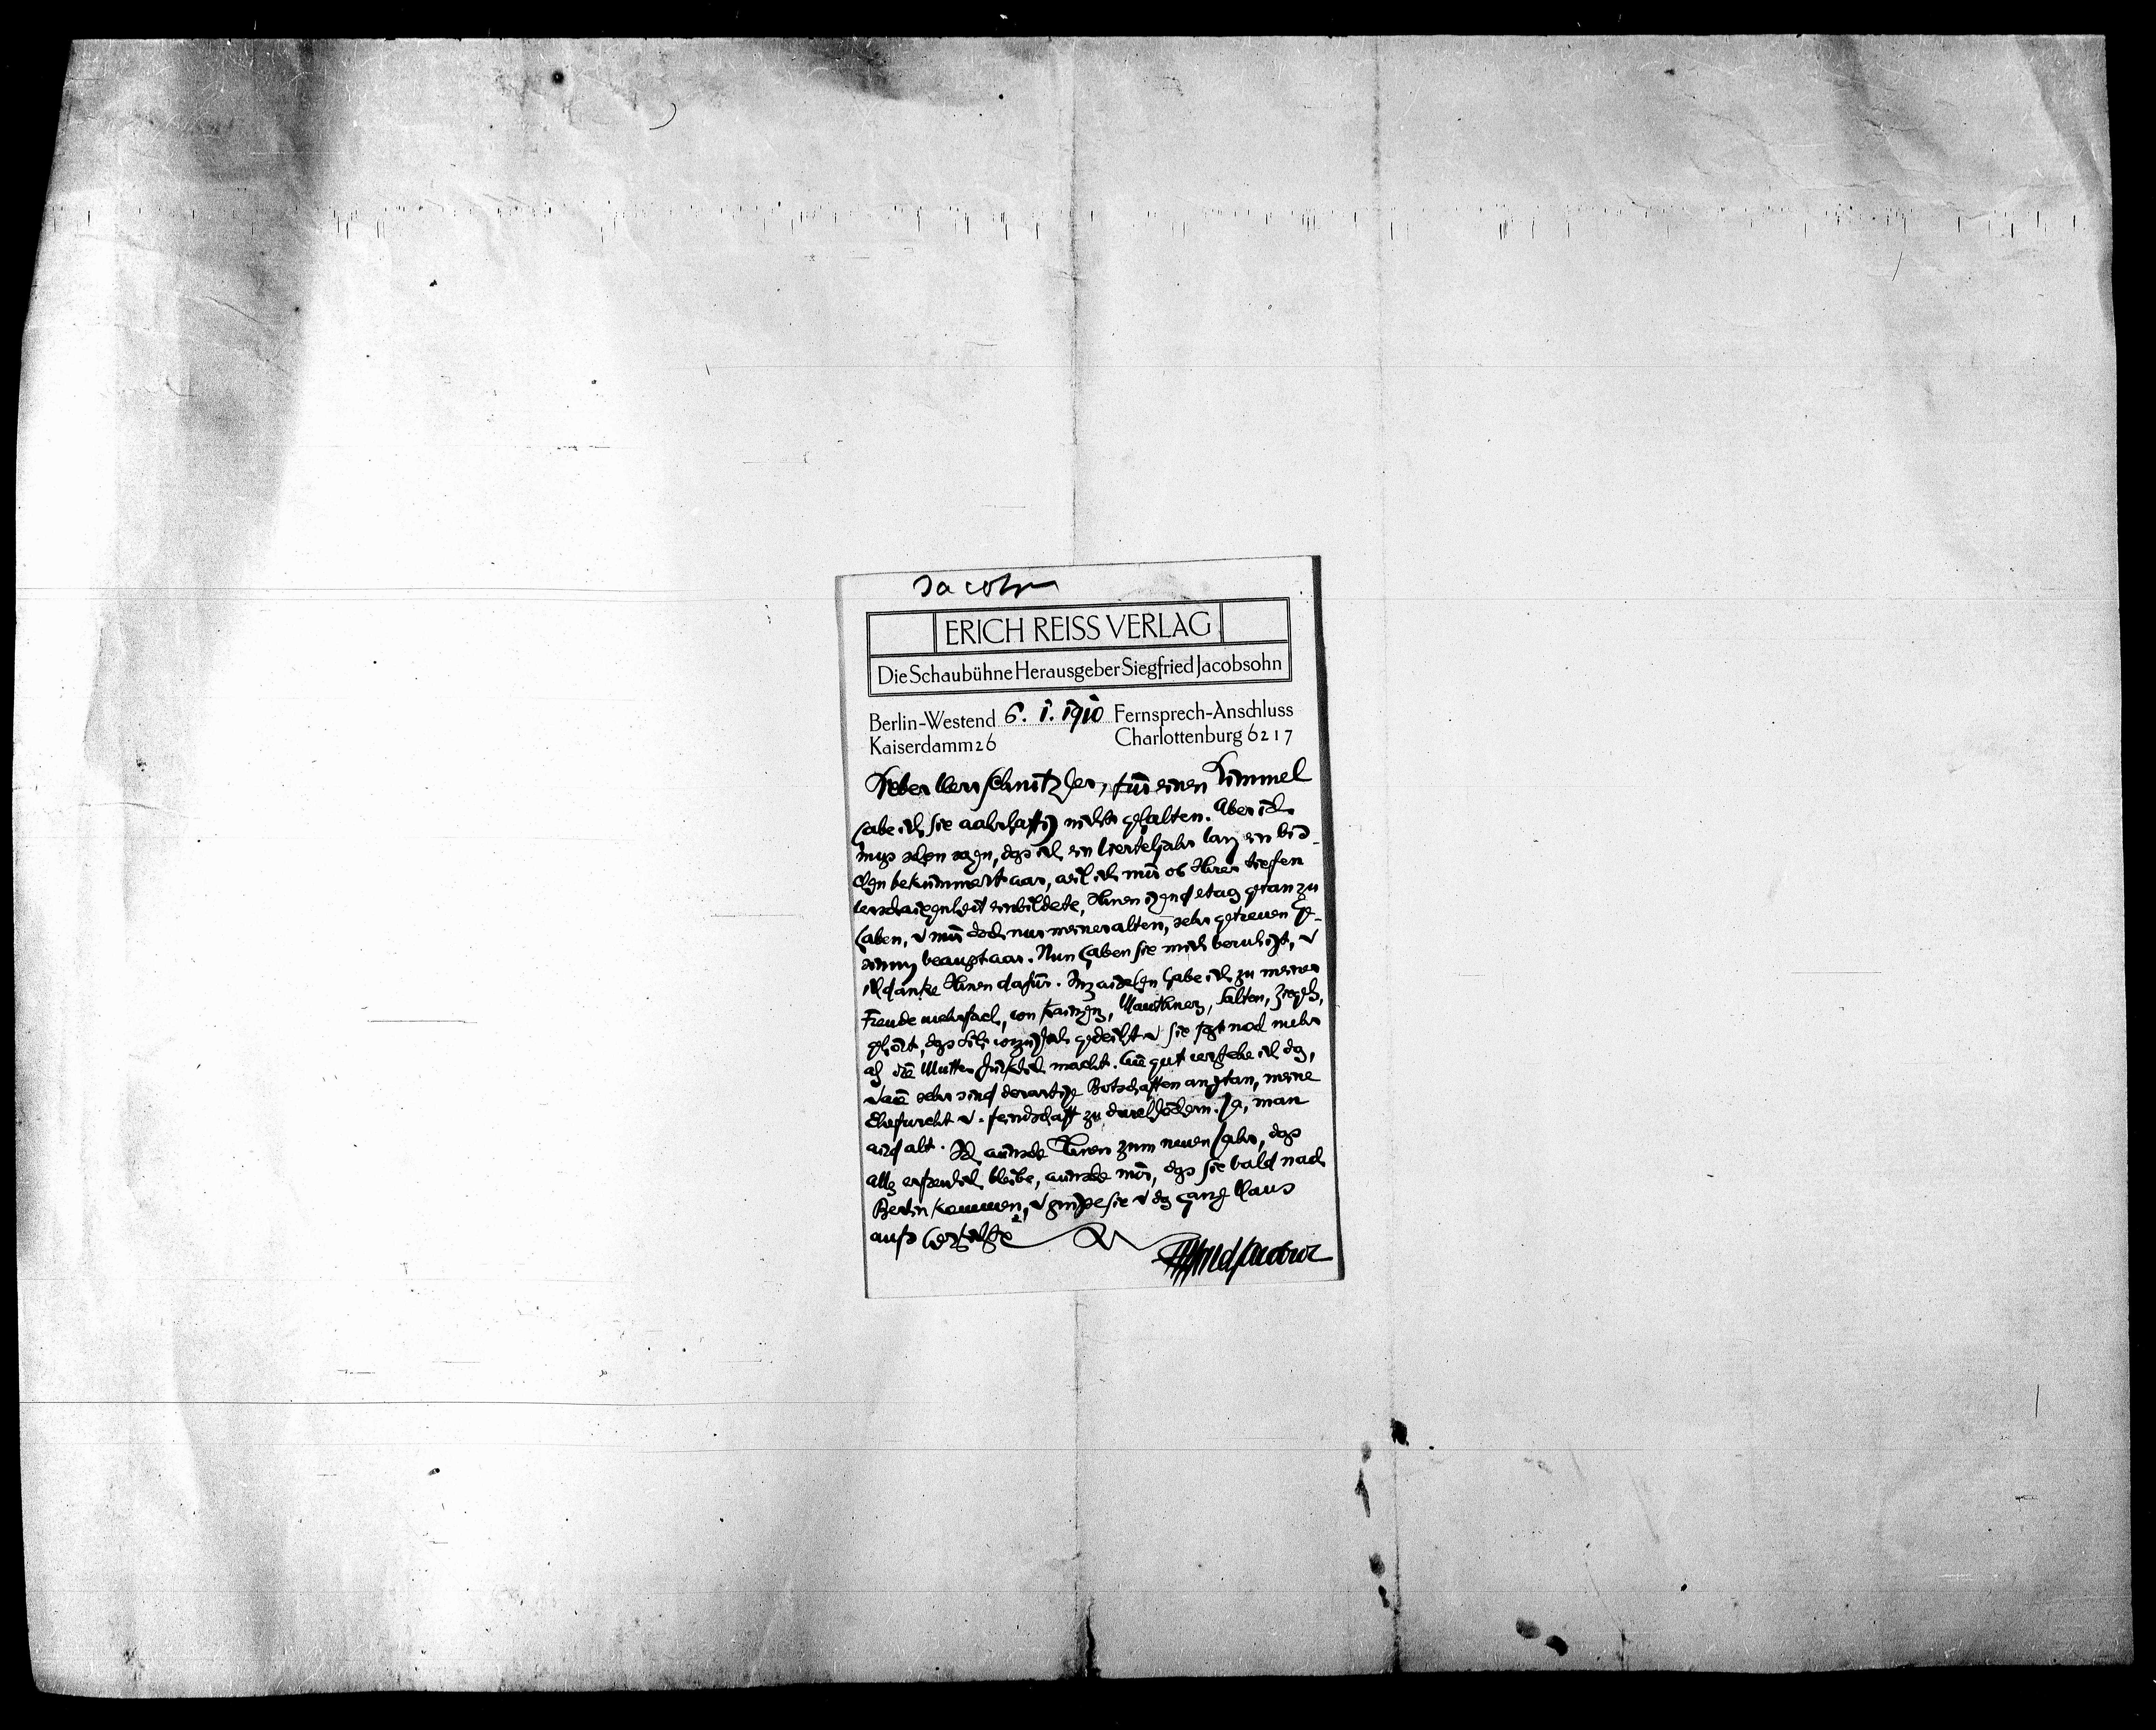 Jacobsohn
ERICH REISS VERLAG
Die Schaubühne Herausgeber Siegfried Jacobsohn
Berlin-Westend 6. 1. 1910 Fernsprech-Anschluss
Kaiserdamm 26 Charlottenburg 6217
Lieber Herr Schnitzler, für einen Lümmel
habe ich Sie wahrhaftig nicht gehalten. Aber ich
muss schon sagen, dass ich ein Vierteljahr lang ein bis-
chen bekümmert war, weil ich mir ob Ihrer tiefen
Verschwiegenheit einbildete, Ihnen irgend etwas getan zu
haben, u mir doch nur meiner alten, sehr getreuen Ge-
sinnung bewusst war. Nun haben Sie mich beruhigt, u
ich danke Ihnen dafür. Inzwischen habe ich zu meiner
Freude mehrfach, von Mauthner, Salten,
gehört, dass Lili vorzüglich gedeiht u Sie fast noch mehr
als die Mutter glücklich macht. Wie gut verstehe ich das,
u wie sehr sind derartige Botschaften angetan, meine
Ehefurcht u. feindschaft zu durchlöchern. Ja, man
wird alt. Ich wünsche Ihnen zum neuen Jahr, dass
alles erfreulich bleibe, wünsche mir, dass Sie bald nach
Berlin kommen, u grüsse Sie u das ganze Haus
aufs herzlichste
Ihr Siegfried Jacobsohn